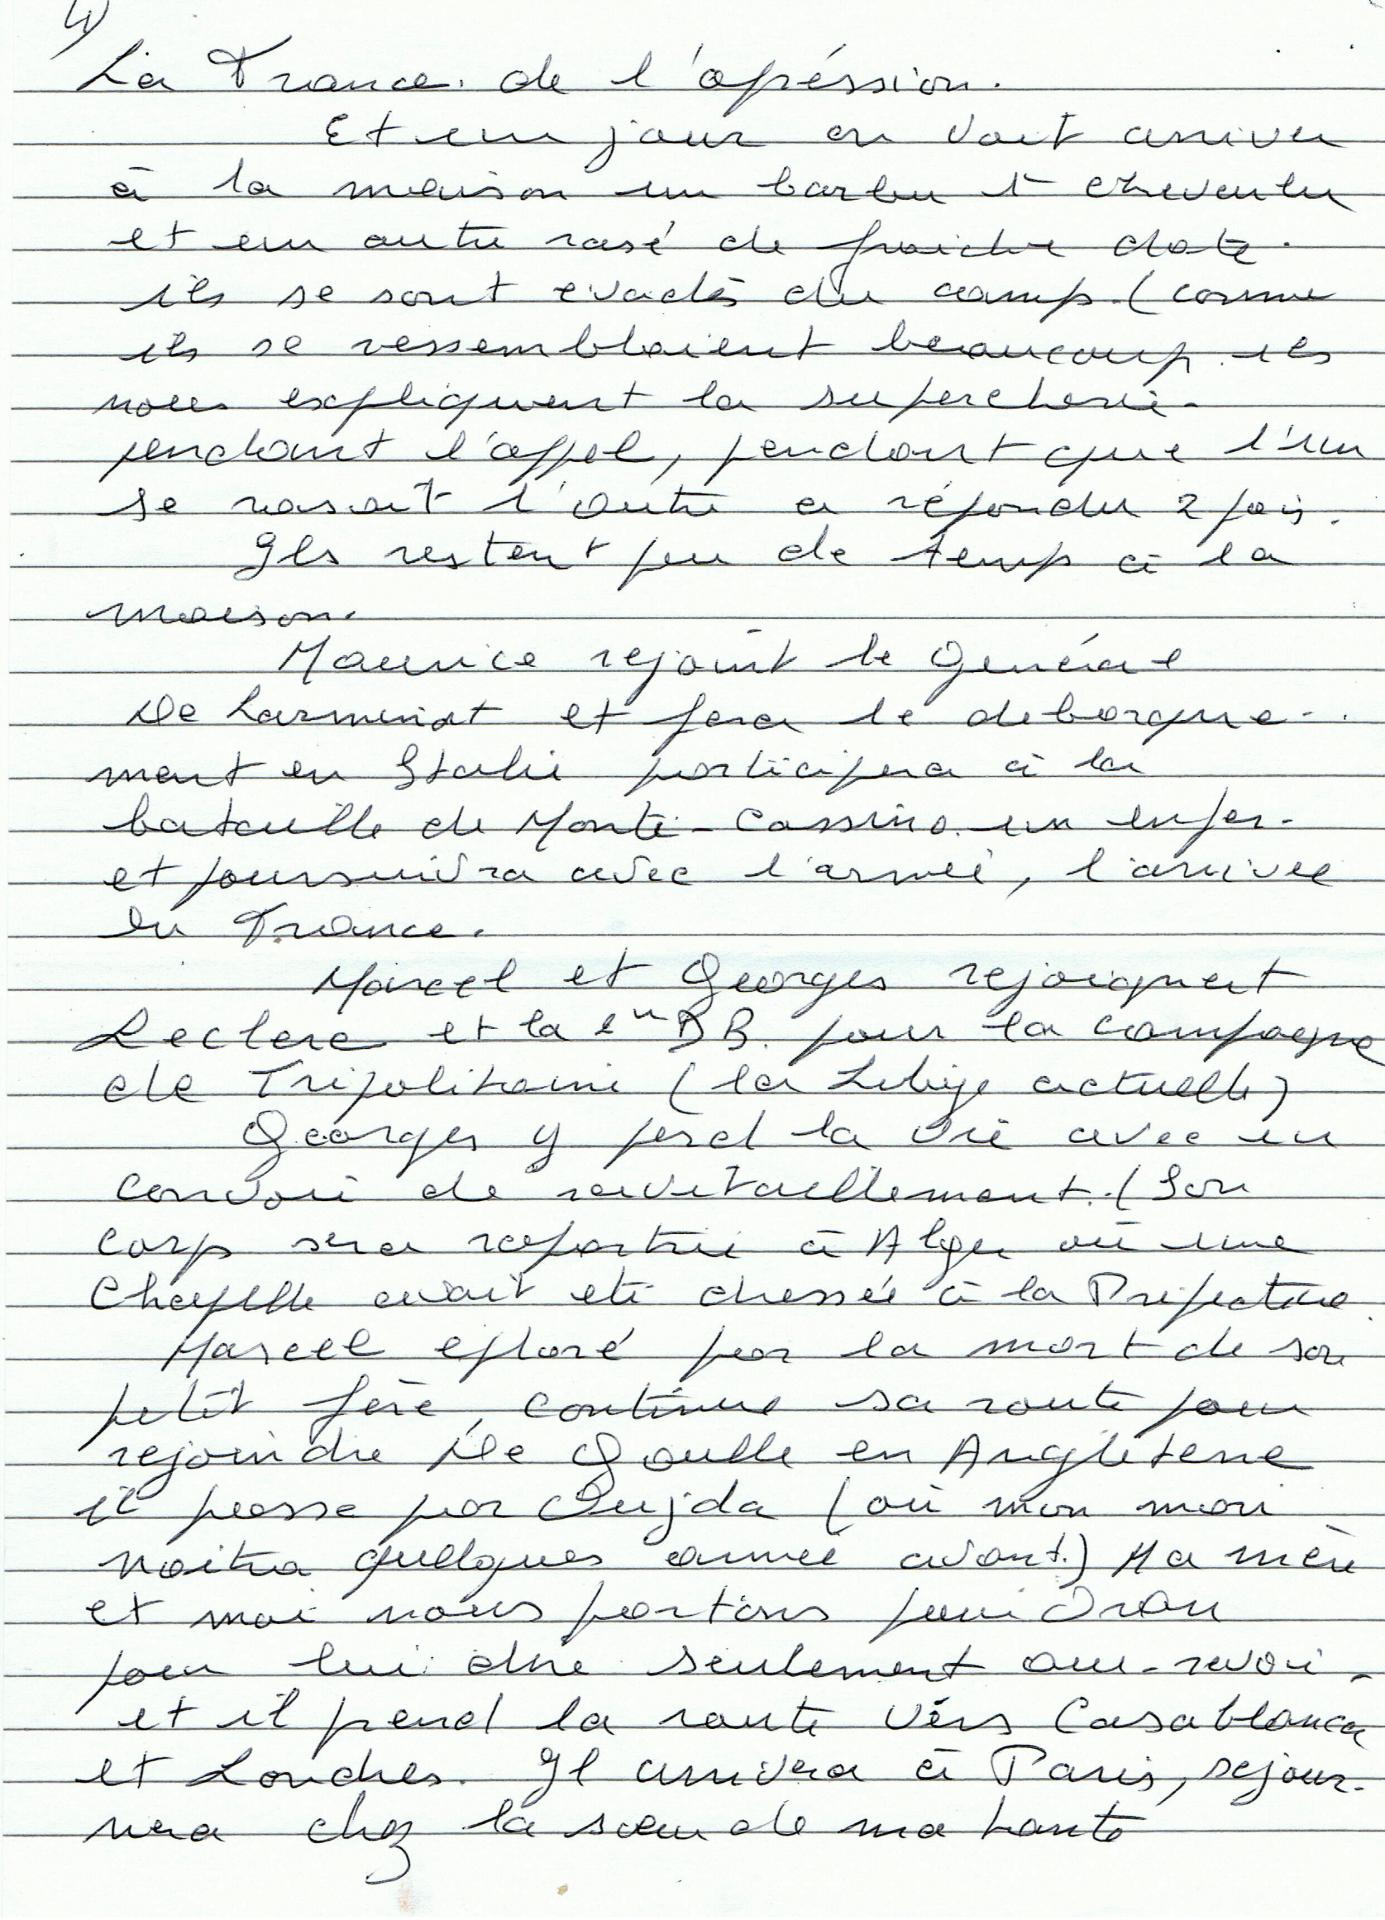 4)
La France. de l'opréssion.
Et un jour on voit arriver
à la maison un barbu et chevelu
et un autre rasé de fraiche date.
ils se sont evadés du camp. (comme
ils se ressemblaient beaucoup. ils
nous expliquent la supercherie.
pendant l'appel, pendant que l'un
se rasait l'autre a répondu 2 fois.
Ils restent peu de temps à la
maison.
Maurice rejoint le Général
De Larminat et fera le debarque-
ment en Italie participera à la
bataille de Monte-Cassino. un enfer.
et poursuivra avec l'armée, l'arrivée
en France.
Marcel et Georges rejoignent
Leclerc et la 2e DB. pour la campagne
de Tripolitaine (la Libye actuelle)
Georges y perd la vie avec un
convoi de ravitaillement. (Son
corps sera rapatrié à Alger où une
Chapelle avait été dressée à la Préfecture.
Marcel eploré par la mort de son
petit frère, continue sa route pour
rejoindre De Gaulle en Angleterre
il passe par Oujda (où mon mari
naitra quelques année avant.) Ma mère
et moi nous partons pour Oran
pour lui dire seulement au-revoir.
et il prend la route vers Casablanca
et Londres. Il arrivera à Paris, sejour-
nera chez la sœur de ma tante